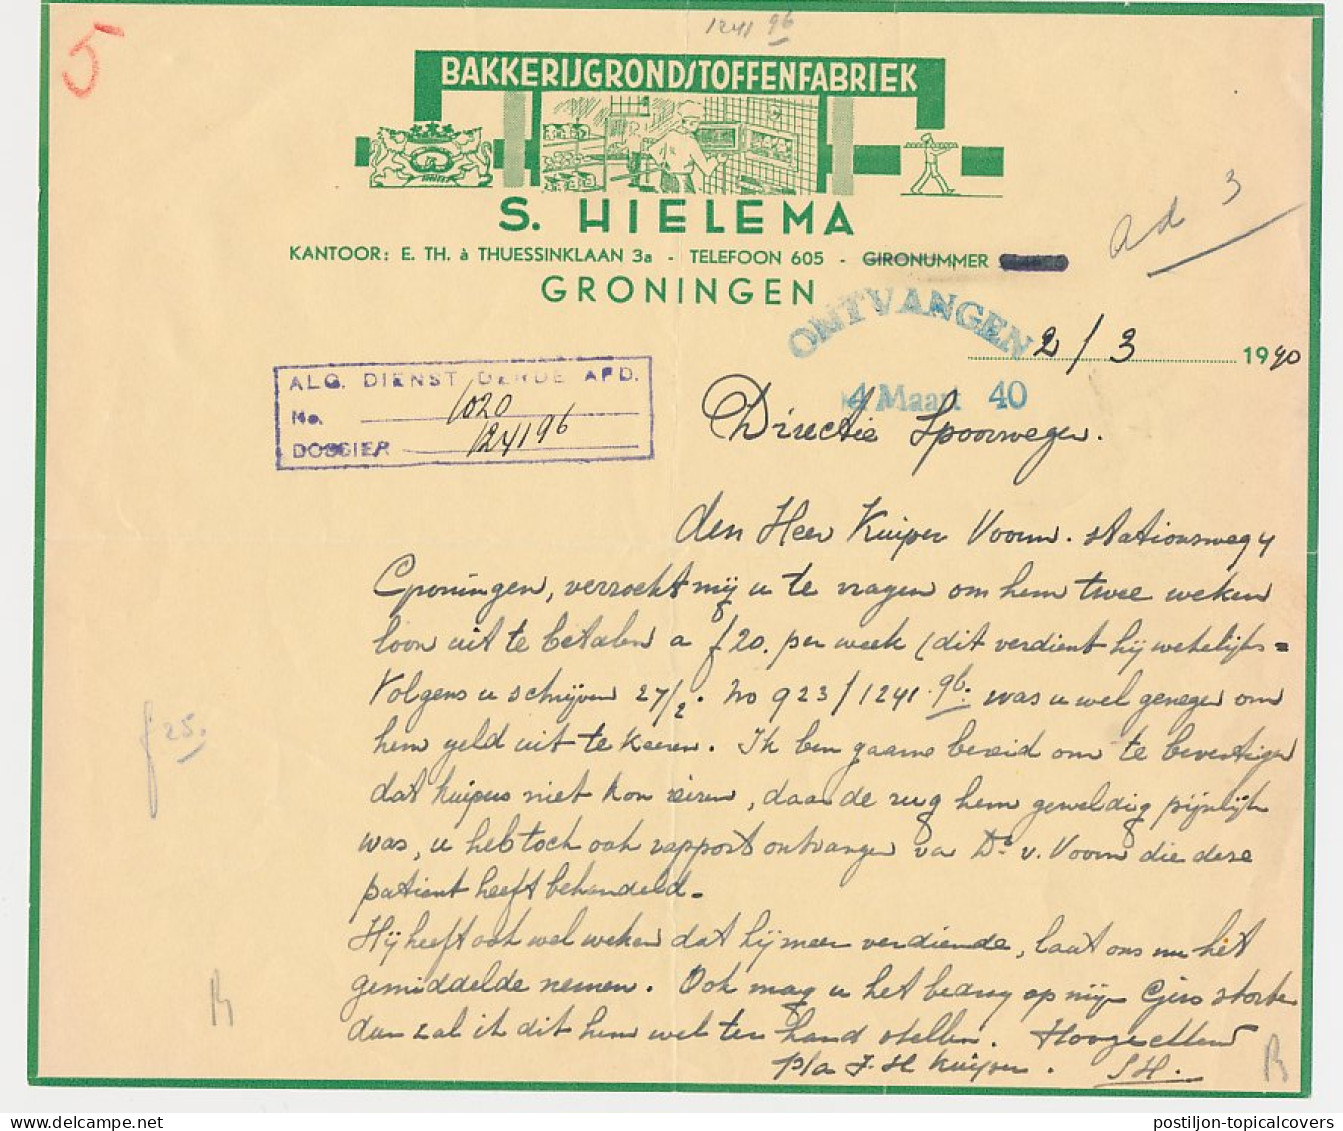 5
1241 96
BAKKERIJGRONDSTOFFENFABRIEK
S. HIELEMA
KANTOOR: E. TH. à THUESSINKLAAN 3a - TELEFOON 605 - GIRONUMMER
GRONINGEN
ad 3
ONTVANGEN
4 Maart 40
2/3 1940
ALG. DIENST DERDE AFD.
No. 1020
DOSSIER 124196
Directie Spoorwegen.
den Heer Kuiper Voorm. stationsweg 4
Groningen, verzoekt mij u te vragen om hem twee weken
loon uit te betalen a f 20. per week (dit verdient hij wekelijks =
Volgens u schrijven 27/2. No 923/1241.96. was u wel genegen om
hem geld uit te keeren. Ik ben gaarne bereid om te bevestigen
f 25.
dat kuipers niet kon, daar de rug hem geweldig pijnlijk
was, u heb toch ook rapport ontvangen va Dr. v. Voorn die deze
patient heeft behandeld.
Hij heeft ook wel weken dat hij meer verdiende, laat ons nu het
gemiddelde nemen. Ook mag u het bedrag op mijn Giro storten
dan zal ik dit hem wel ter hand stellen. Hoogachtend
p/a J. H Kuiper. SH.
postiljon-topicalcovers